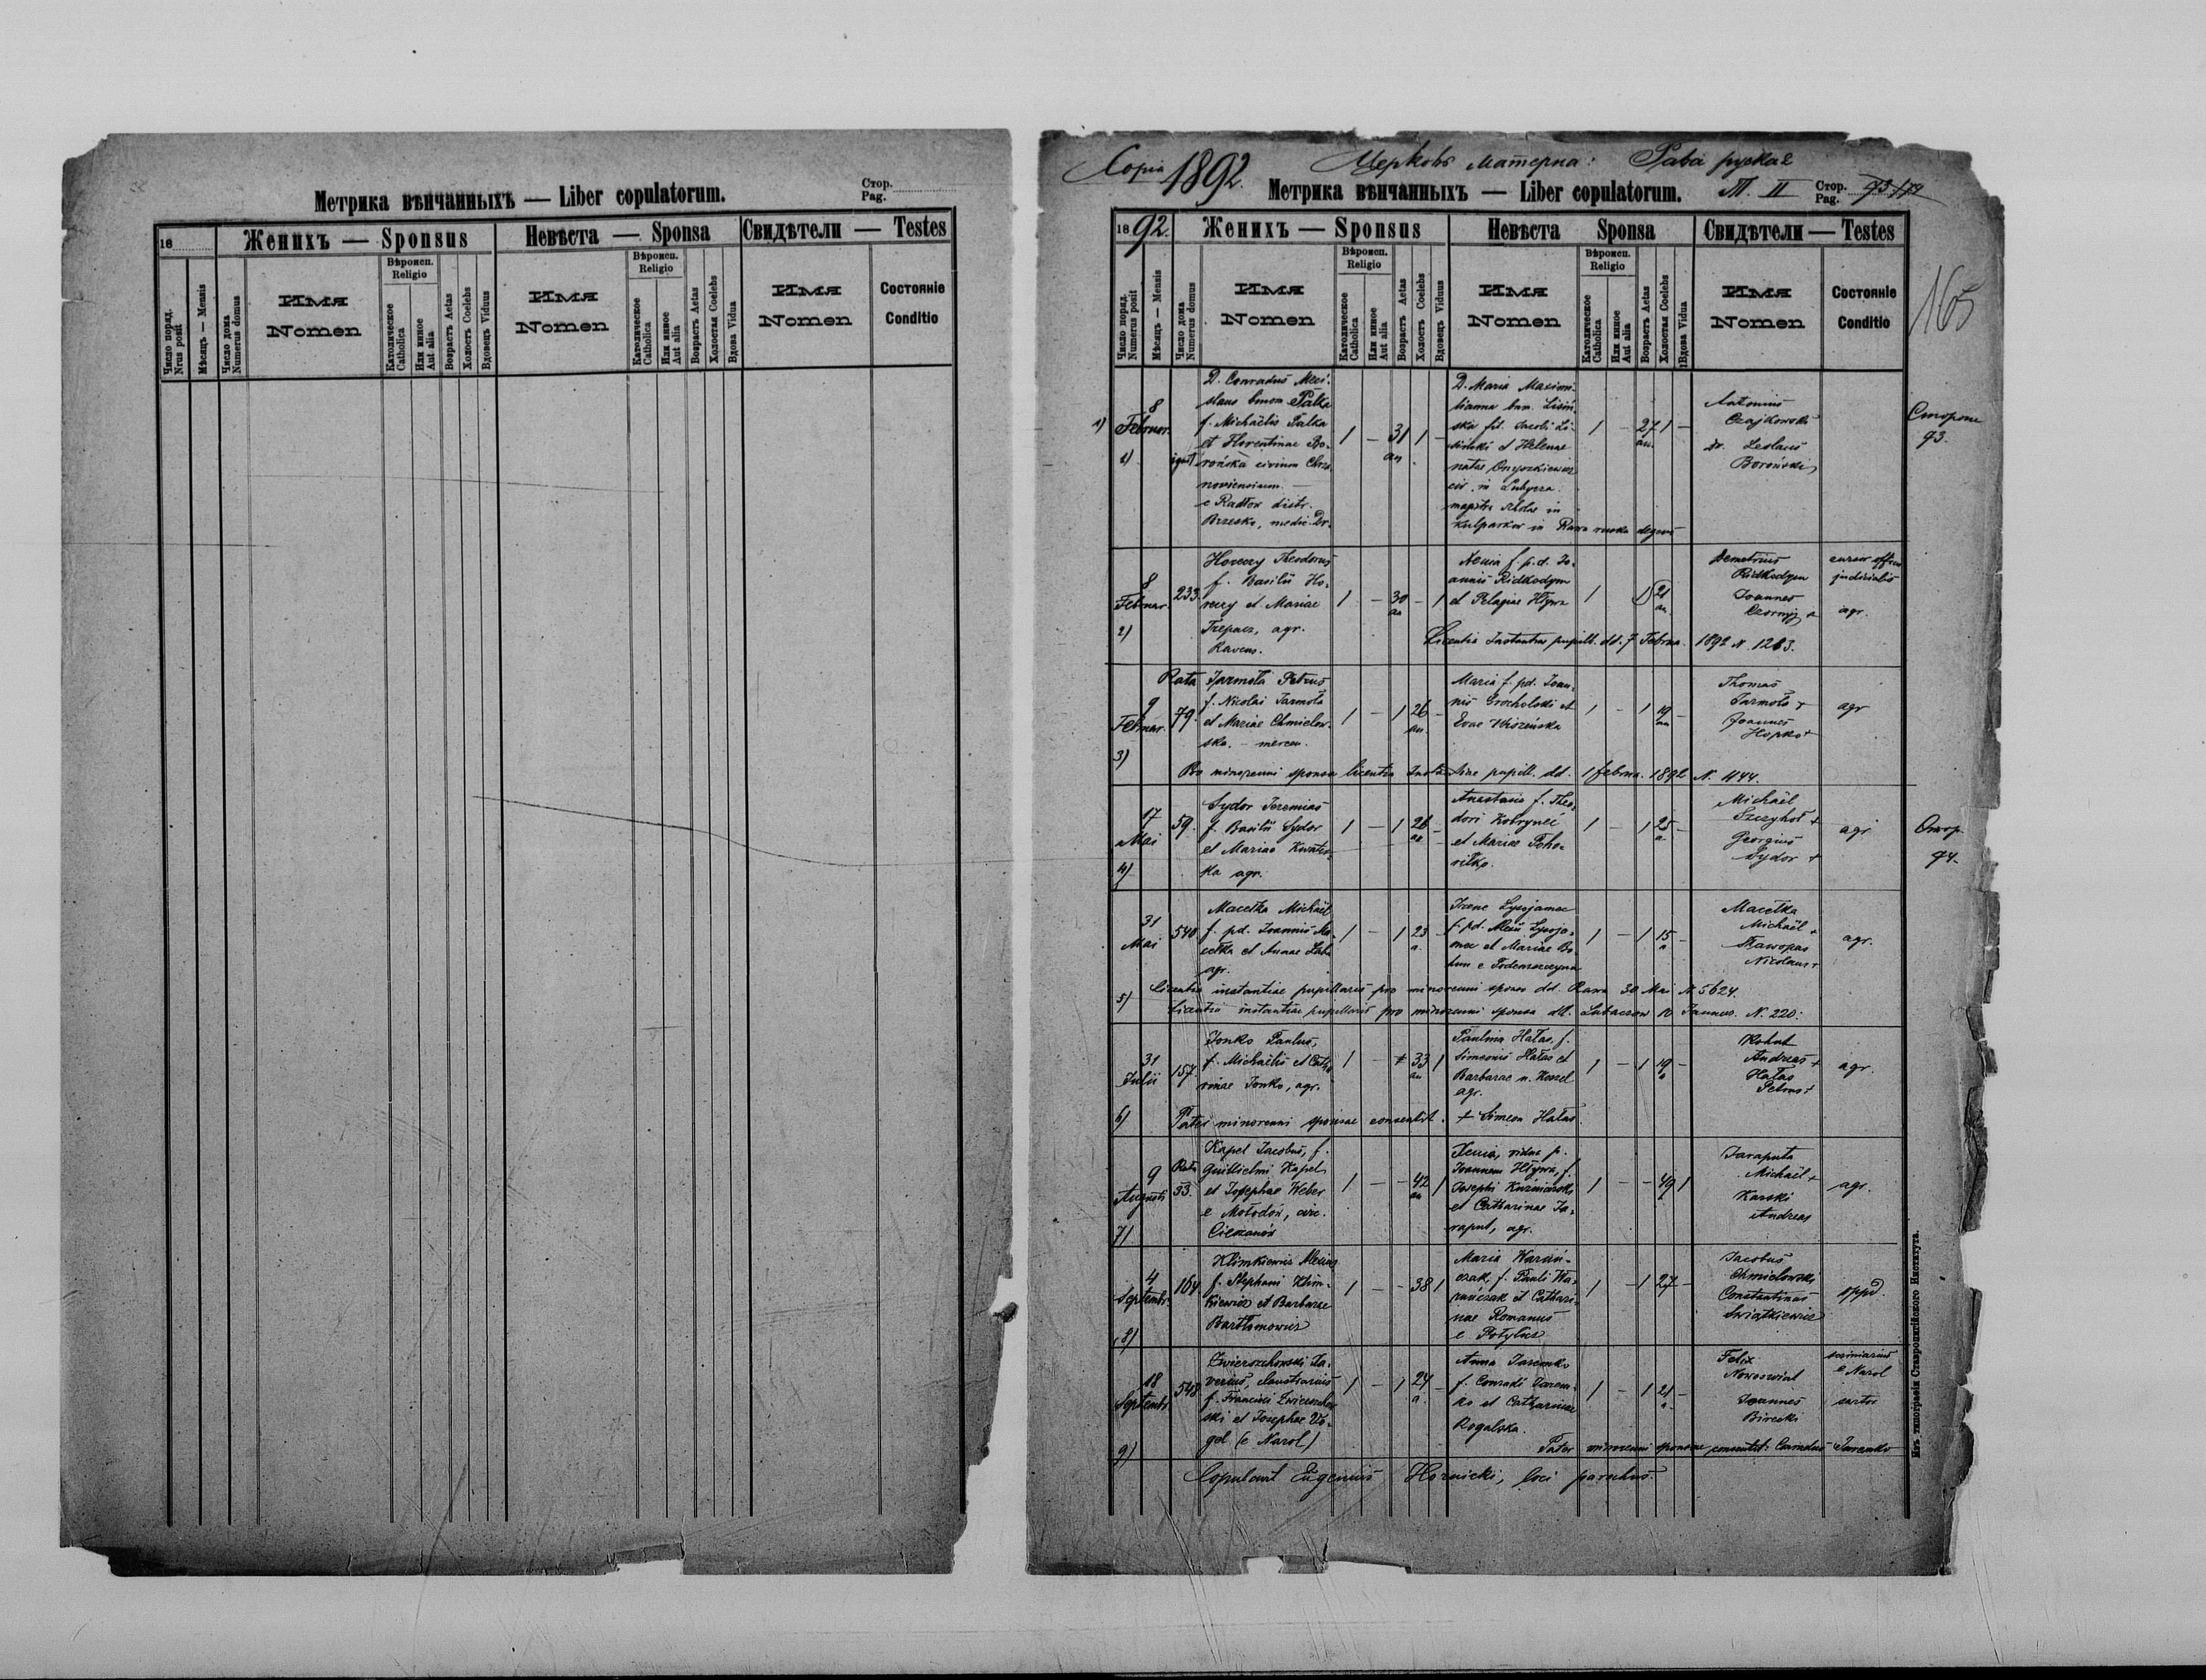 Метрика вѣнчанныхъ — Liber copulatorum.
Стор.
Pag.
18
Женихъ — Sponsus
Невѣста — Sponsa
Свидѣтели — Testes
Число поряд.
Nrus posit
Мѣсяцъ — Mensis
Число дома
Numerus domus
Имя
Nomen
Вѣроисп.
Religio
Католическое
Catholica
Или иное
Aut alia
Возрастъ Aetas
Холостъ Coelebs
Вдовецъ Viduus
Имя
Nomen
Вѣроисп.
Religio
Католическое
Catholica
Или иное
Aut alia
Возрастъ Aetas
Холостая Coelebs
Вдова Vidua
Имя
Nomen
Состояніе
Conditio
Copia 1892. Церковь матерна: Рава руска
Метрика вѣнчанныхъ — Liber copulatorum. Т. II
Стор.
Pag. 93
165
1892.
Женихъ — Sponsus
Невѣста Sponsa
Свидѣтели — Testes
Число поряд.
Numerus posit
Мѣсяцъ — Mensis
Число дома
Numerus domus
Имя
Nomen
Вѣроисп.
Religio
Католическое
Catholica
Или иное
Aut alia
Возрастъ Aetas
Холостъ Coelebs
Вдовецъ Viduus
Имя
Nomen
Вѣроисп.
Religio
Католическое
Catholica
Или иное
Aut alia
Возрастъ Aetas
Холостая Coelebs
Вдова Vidua
Имя
Nomen
Состояніе
Conditio
1)
8
Februar.
1)
D. Conradus Meci-
slaus binom. Palka
f. Michaëlis Palka
et Florentinae Bo-
rońska civium Chrza-
noviensium. —
e Radłow distr.
Brzesko, medic. Dr.
1 — 31 1 —
an
D. Maria Maximi-
lianna bnm. Lisiń-
ska fil. Jacobi Li-
sinski et Helenae
natae Onyszkiewicz
civ. in Lubycza
magistra scholae in
Kulparkow in Rawa ruska degens
1 — 27 1 —
an.
Antonius
Czajkowski
Dr. Leslaus
Boroński
Стороне
93.
8
Februar.
2)
233.
Horeczy Theodorus
f. Basilii Ho-
reczy et Mariae
Trepacz, agr.
Ravens.
1 — 30 — 1
an
Xenia f. p.d. Jo-
annis Ridkodym
et Pelagiae Hływa
1 1 21
an.
Demetrius
Ridkodym
Joannes
Czornyj +
cursor offic.
judicialis
agr.
Licentia Instantiae pupill. dd. 7 Februa. 1892 N. 1263.
9
Februar.
3)
Rata
79.
Jarmoła Petrus
f. Nicolai Jarmoła
et Mariae Chmielow-
ska. — mercen.
1 — 1 26 —
an.
Maria f. pd. Joan-
nis Grocholski et
Evae Wiszeńska
1 — 1 19 —
an
Thomas
Jarmoła +
Joannes
Hopko +
agr
Pro minorenni sponsa licentia Instantiae pupill. dd. 1 februa. 1892 N. 1144.
17
Mai
4)
59.
Sydor Jeremias
f. Basilii Sydor
et Mariae Kwatro-
ka agr.
1 — 1 26 —
an
Anastasia f. Theo-
dori Kobryneć
et Mariae Poho-
riłko.
1 — 1 25 —
a.
Michaël
Szczyhoł +
Georgius
Sydor +
agr
Стор.
94.
31
Mai
5)
540
Macełka Michaël
f. pd. Joannis Ma-
cełka et Annae Łaba
agr.
1 — 1 23
a.
Irene Łysojamec
f. pd. Alexii Łysoja-
mec et Mariae Bo-
hun e Podemszczyzna
1 — 1 15 —
a
Macełka
Michaël +
Nicolaus +
agr.
Licentia instantiae pupillaris pro minorenni sponso dd. Rawa 30 Mai N. 5624.
Licentia instantiae pupillaris pro minorenni sponsa dd. Lubaczow 10 Januar. N. 220.
31
Julii
6)
157.
Jonko Paulus,
f. Michaëlis et Catha-
rinae Jonko, agr.
1 — 33 1
an
Paulina Hałas, f.
Simeonis Hałas et
Barbarae n. Kossel
agr.
1 — 1 19 —
a
Kohut
Andreas +
Hałas
Petrus +
agr.
Pater minorenni sponsae consentit. + Simeon Hałas.
9
Augusti
7)
Rata
33.
Kapel Jacobus, f.
Guilielmi Kapel
et Josephae Weber
e Mołodów, circ.
Cieszanów
1 — — 42 1
an
Xenia, vidua p.
Joannem Hływa, f.
Josephi Kuźniarski
et Catharinae Ta-
raput, agr.
1 — — 49 1
a
Taraputa
Michaël +
Karski
Andreas
agr.
4
Septembr.
8)
164.
Klimkiewicz Alexius
f. Stephani Klim-
kiewicz et Barbarae
Bartłomowicz
1 — — 38 1
Maria Warań-
czak, f. Pauli Wa-
rańczak et Cathari-
nae Romanus
e Potylicz
1 — 1 27 —
Jacobus
Chmielowski
Constantinus
Swiątkiewicz
oppid.
18
Septembr.
9)
548
Zwierzchowski Xa-
verius, claustrarius
f. Francisci Zwierzchow-
ski et Josephae Wo-
gel (e Narol)
1 — 1 24 —
a.
Anna Jaremko
f. Conradi Jarem-
ko et Catharinae
Rogalska.
1 — 1 21 —
a.
Felix
Nowoswiat
Joannes
Birecki
e Narol
sartor
Pater minorenni sponsae consentit: Conradus Jaremko
Copulavit Eugenius Hornicki, loci parochus.
Изъ типографіи Ставропигійского Института.